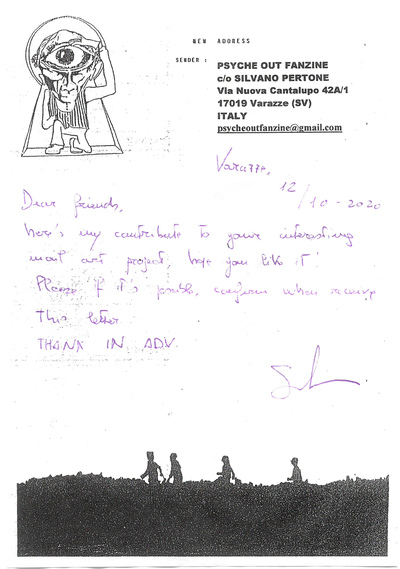 NEW ADDRESS
SENDER :
PSYCHE OUT FANZINE
c/o SILVANO PERTONE
Via Nuova Cantalupo 42A/1
17019 Varazze (SV)
ITALY
psycheoutfanzine@gmail.com
Varazze,
12/10-2020
Dear friends,
here's my contribute to your interesting
mail art project, hope you like it!
Please if it's possible, confirm when receive
this letter
THANK IN ADV.